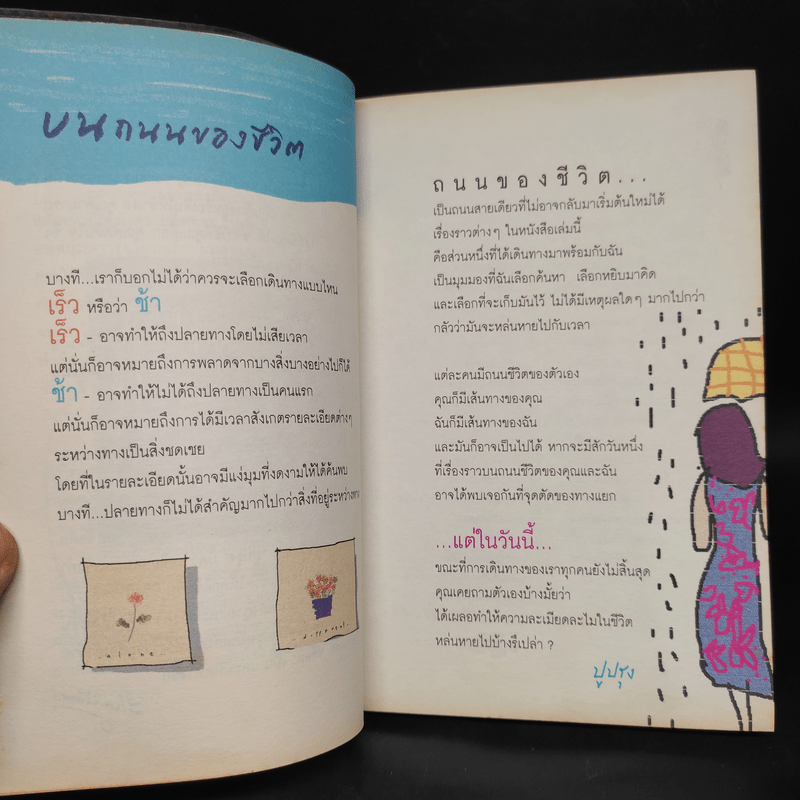 บนถนนของชีวิต
บางที...เราก็บอกไม่ได้ว่าควรจะเลือกเดินทางแบบไหน
เร็ว หรือว่า ช้า
เร็ว - อาจทำให้ถึงปลายทางโดยไม่เสียเวลา
แต่นั่นก็อาจหมายถึงการพลาดจากบางสิ่งบางอย่างไปก็ได้
ช้า - อาจทำให้ไม่ได้ถึงปลายทางเป็นคนแรก
แต่นั่นก็อาจหมายถึงการได้มีเวลาสังเกตรายละเอียดต่างๆ
ระหว่างทางเป็นสิ่งชดเชย
โดยที่ในรายละเอียดนั้นอาจมีแง่มุมที่งดงามให้ได้ค้นพบ
บางที...ปลายทางก็ไม่ได้สำคัญมากไปกว่าสิ่งที่อยู่ระหว่างทาง
..alone...
..different..
ถนนของชีวิต...
เป็นถนนสายเดียวที่ไม่อาจกลับมาเริ่มต้นใหม่ได้
เรื่องราวต่างๆ ในหนังสือเล่มนี้
คือส่วนหนึ่งที่ได้เดินทางมาพร้อมกับฉัน
เป็นมุมมองที่ฉันเลือกค้นหา เลือกหยิบมาคิด
และเลือกที่จะเก็บมันไว้ ไม่ได้มีเหตุผลใดๆ มากไปกว่า
กลัวว่ามันจะหล่นหายไปกับเวลา
แต่ละคนมีถนนชีวิตของตัวเอง
คุณก็มีเส้นทางของคุณ
ฉันก็มีเส้นทางของฉัน
และมันก็อาจเป็นไปได้ หากจะมีสักวันหนึ่ง
ที่เรื่องราวบนถนนชีวิตของคุณและฉัน
อาจได้พบเจอกันที่จุดตัดของทางแยก
...แต่ในวันนี้...
ขณะที่การเดินทางของเราทุกคนยังไม่สิ้นสุด
คุณเคยถามตัวเองบ้างมั้ยว่า
ได้เผลอทำให้ความละเมียดละไมในชีวิต
หล่นหายไปบ้างรึเปล่า ?
ปูปรุง